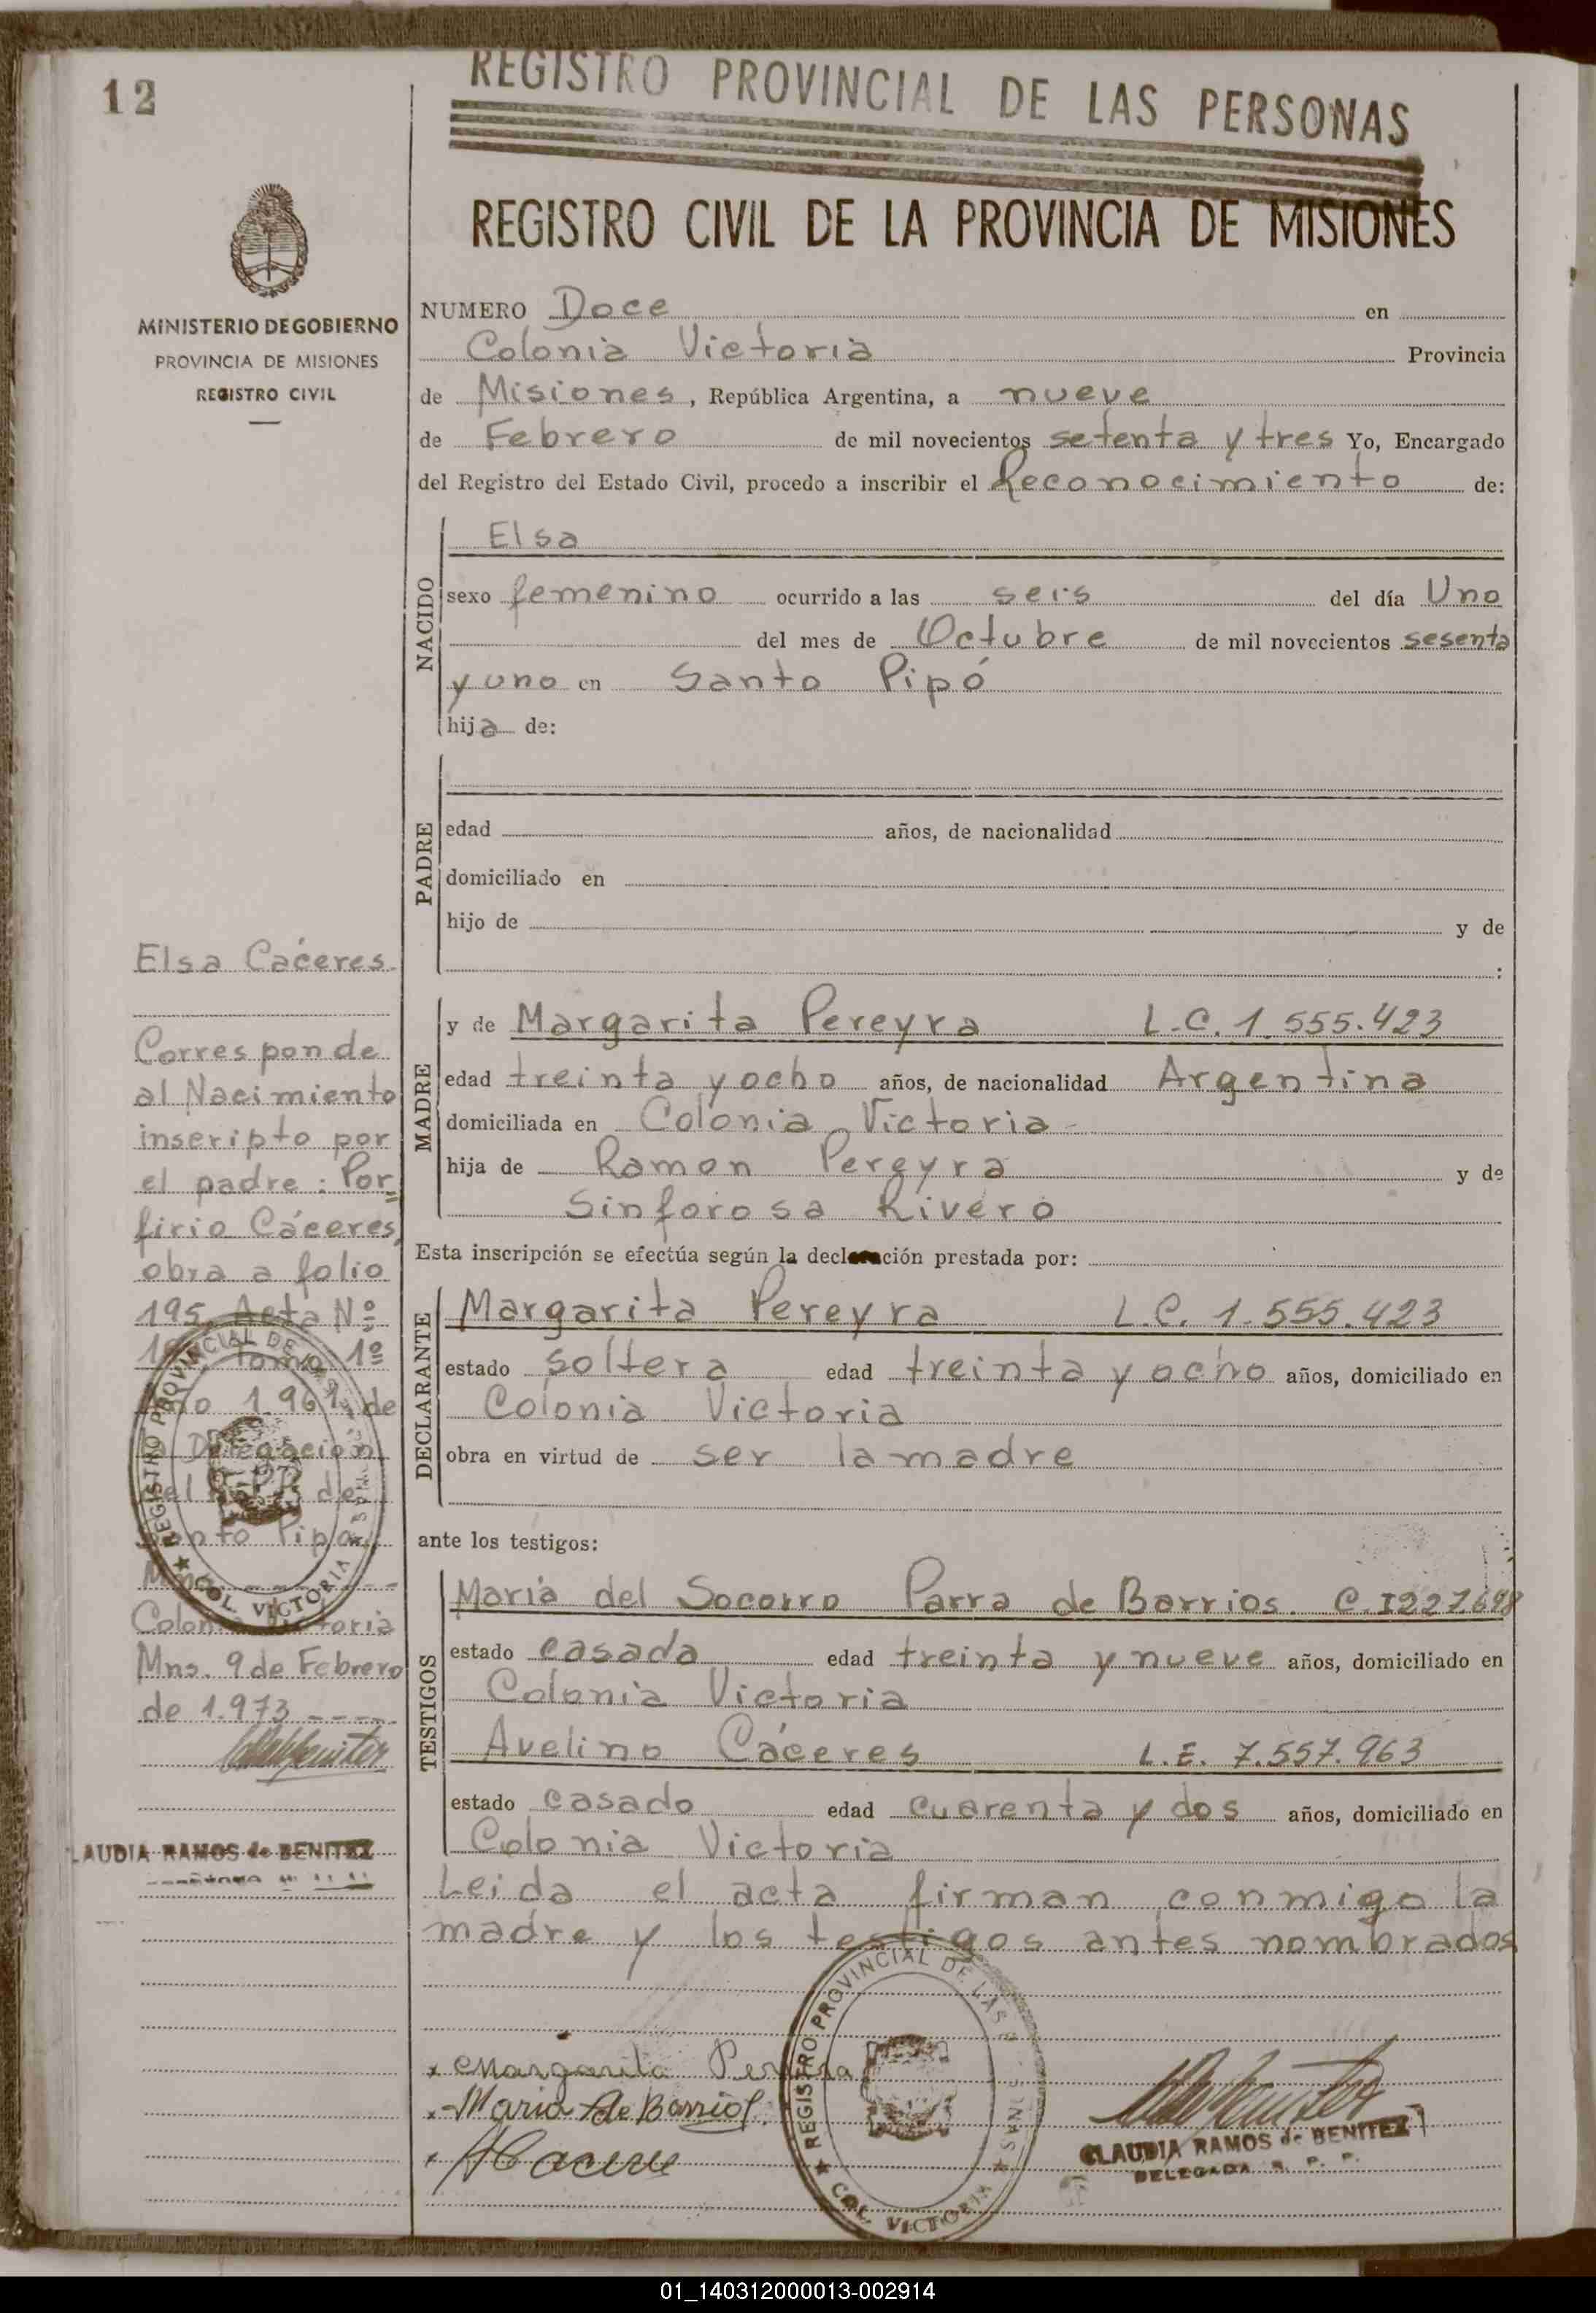 12
REGISTRO PROVINCIAL DE LAS PERSONAS
REGISTRO CIVIL DE LA PROVINCIA DE MISIONES
MINISTERIO DE GOBIERNO
PROVINCIA DE MISIONES
REGISTRO CIVIL
NUMERO Doce en
Colonia Victoria Provincia
de Misiones, República Argentina, a nueve
de Febrero de mil novecientos setenta y tres Yo, Encargado
del Registro del Estado Civil, procedo a inscribir el Reconocimiento de:
NACIDO
Elsa
sexo femenino ocurrido a las seis del día Uno
del mes de Octubre de mil novecientos sesenta
y uno en Santo Pipó
hija de:
PADRE
edad años, de nacionalidad
domiciliado en
hijo de y de
:
MADRE
y de Margarita Pereyra L.C. 1.555.423
edad treinta y ocho años, de nacionalidad Argentina
domiciliada en Colonia Victoria
hija de Ramon Pereyra y de
Sinforosa Rivero
Esta inscripción se efectúa según la declaración prestada por:
DECLARANTE
Margarita Pereyra L.C. 1.555.423
estado soltera edad treinta y ocho años, domiciliado en
Colonia Victoria
obra en virtud de ser la madre
ante los testigos:
TESTIGOS
María del Socorro Parra de Barrios. C.I 227.698
estado casada edad treinta y nueve años, domiciliado en
Colonia Victoria
Avelino Cáceres L.E. 7.557.963
estado casado edad cuarenta y dos años, domiciliado en
Colonia Victoria
Leida el acta firman conmigo la
madre y los testigos antes nombrados
Elsa Cáceres.
Corresponde
al Nacimiento
inscripto por
el padre: Por=
firio Cáceres,
obra a folio
195, Acta Nº
Tomo 1º
Año 1.961, de
la Delegación
del de
Santo Pipó
Mnes. ----
Colonia Victoria
Mns. 9 de Febrero
de 1.973 ----
CLAUDIA RAMOS de BENITEZ
REGISTRO PROVINCIAL DE LAS
COL. VICTORIA
Margarita Pereyra
Maria de Barrios
ACacere
REGISTRO PROVINCIAL DE LAS
COL. VICTORIA
CLAUDIA RAMOS de BENITEZ
DELEGADA R. P. P.
01_140312000013-002914